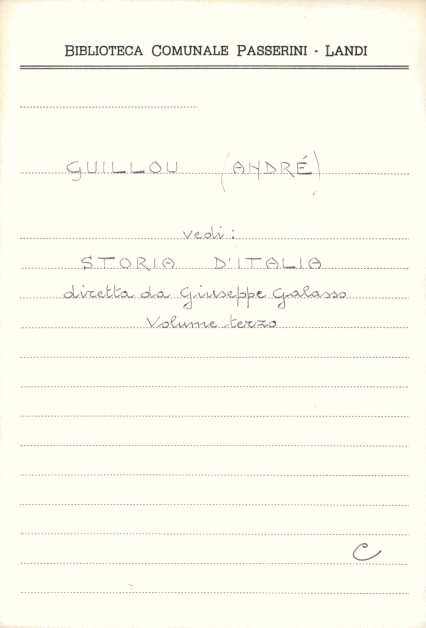 BIBLIOTECA COMUNALE PASSERINI - LANDI
GUILLOU (ANDRÉ)
vedi:
STORIA D'ITALIA
diretta da Giuseppe Galasso
Volume terzo
C